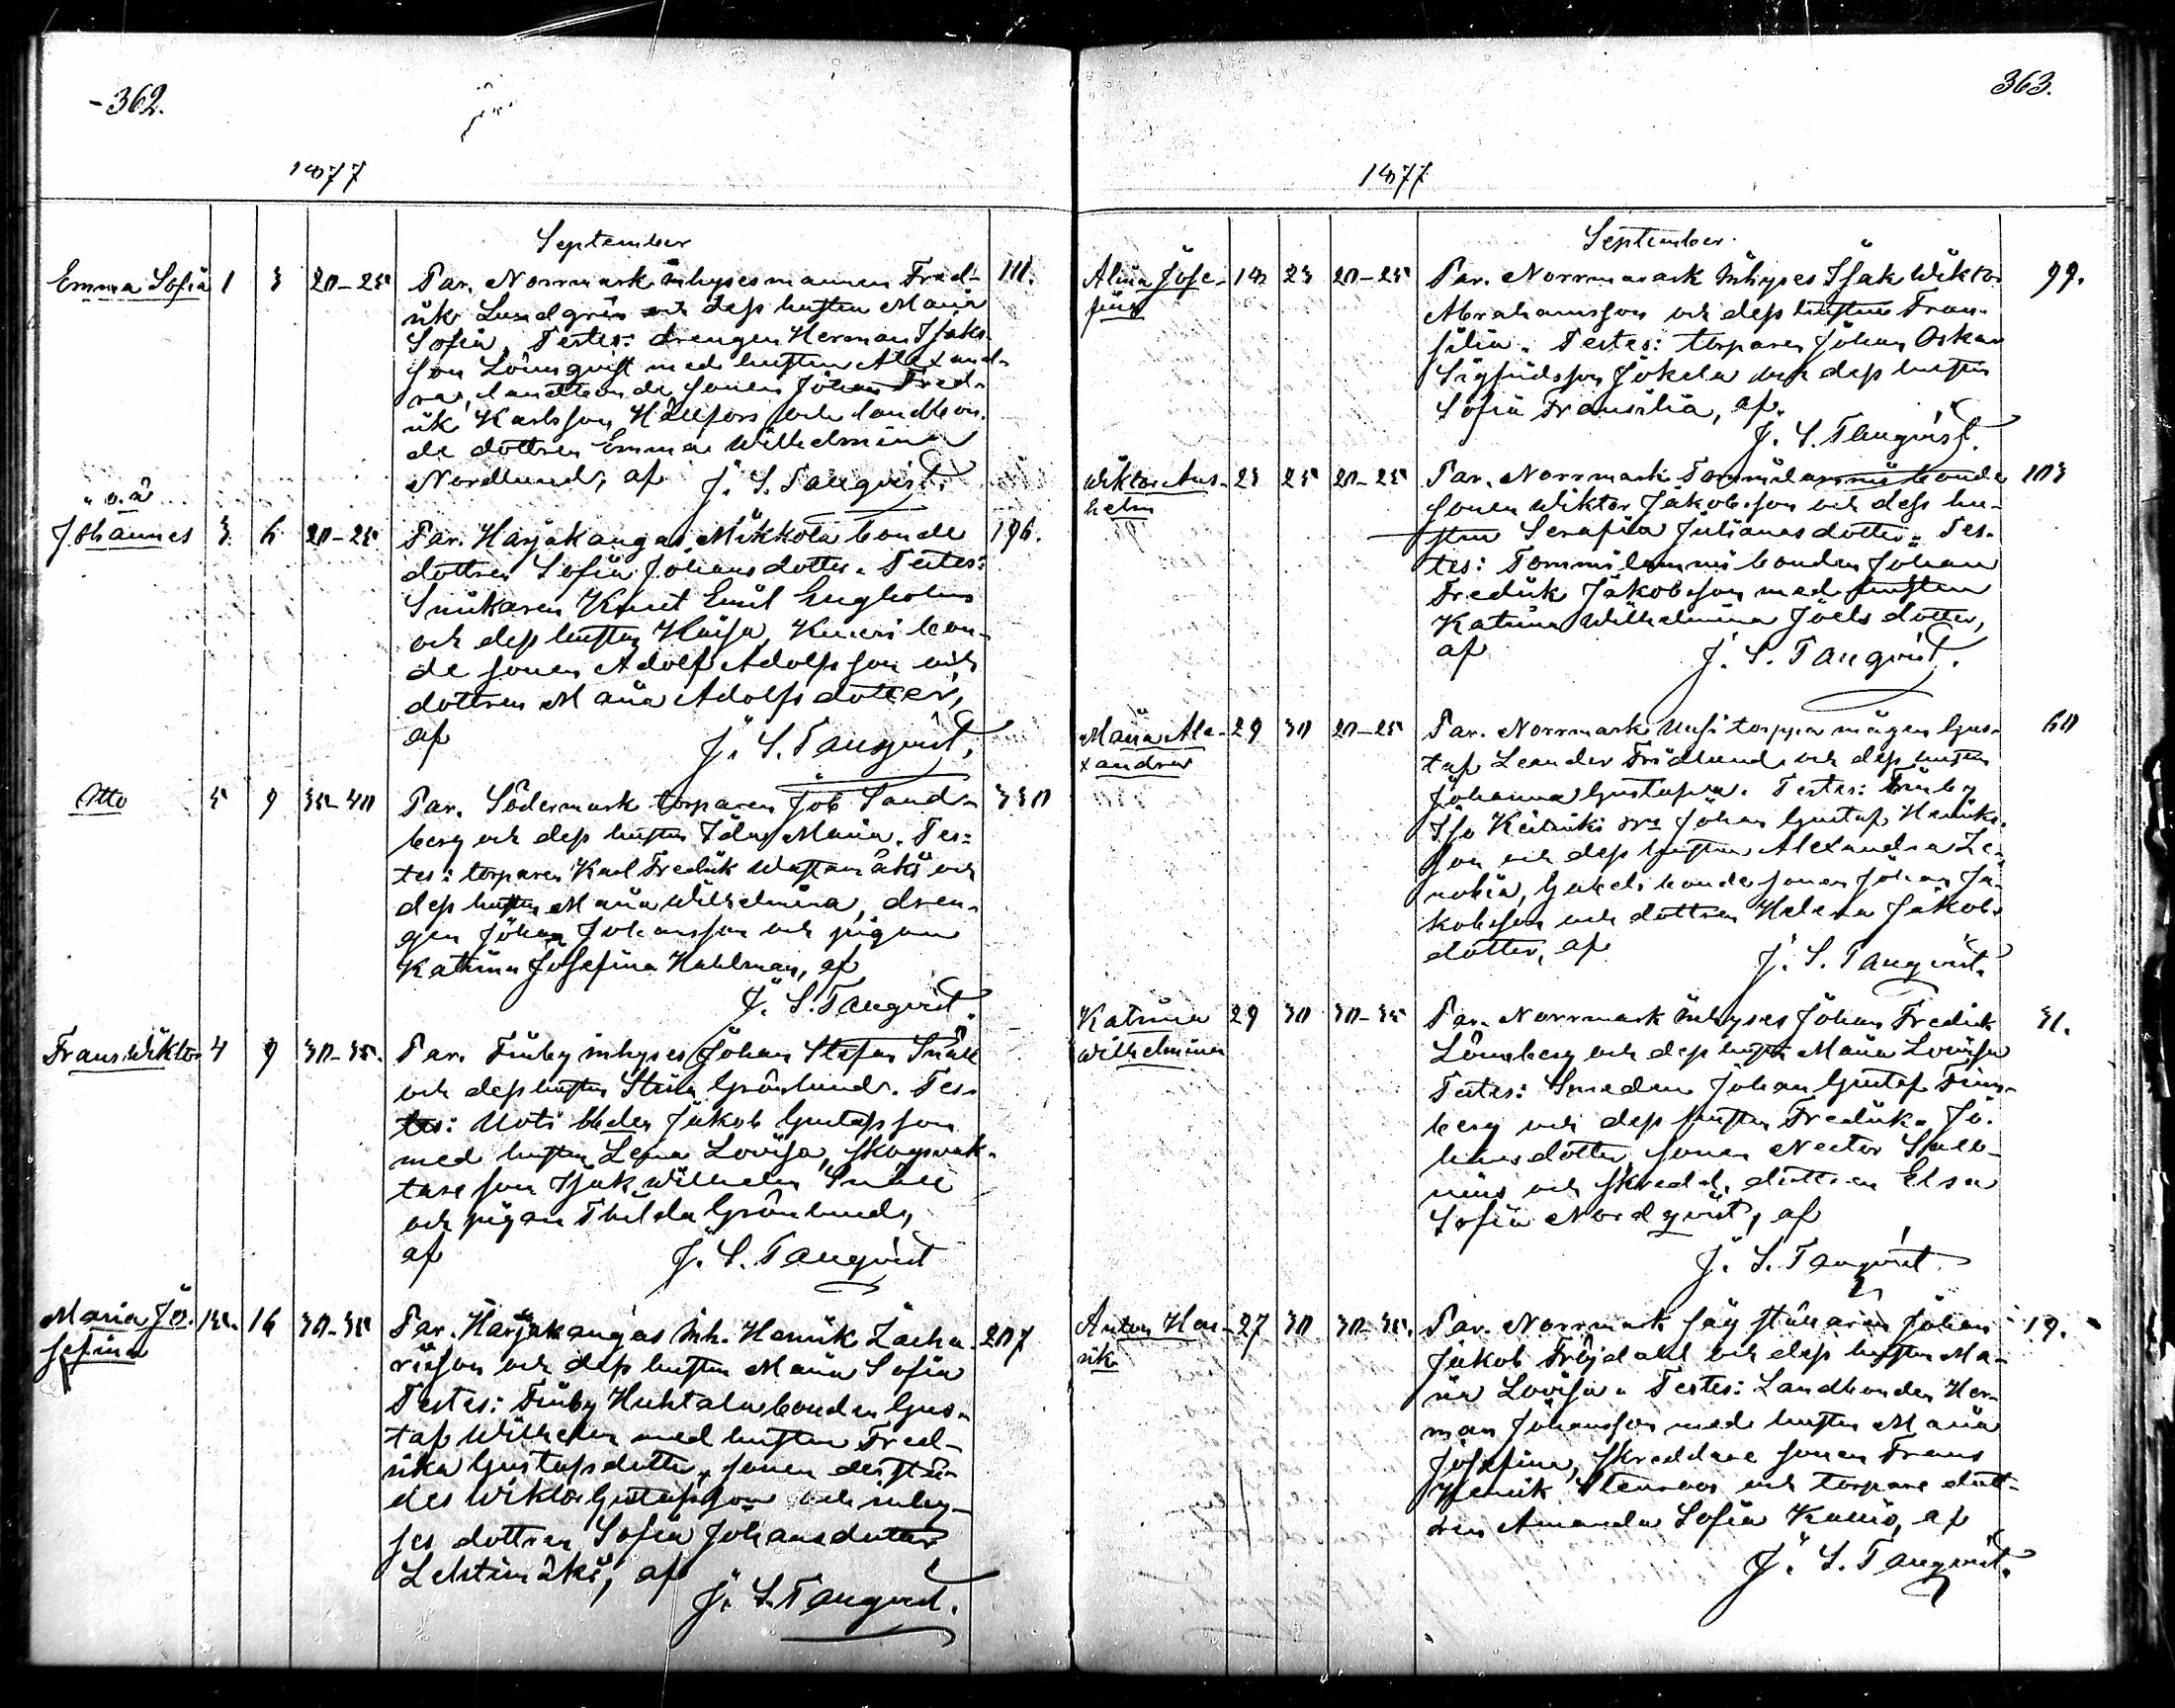 362.
1877
September
Emma Sofia 1 3 20-25 Par. Norrmark inhysesmannen Fred- 111.
rik Lundgrén och dess hustru Maria
Sofia. Testes: drengen Herman Isaks
son Lönnqvist med hustru Alexand-
ra, landbonde sonen Johan Fred-
rik Karlsson Hällfors och landbon-
de dottren Emma Wilhelmina
Nordlund, af J. S. Tanqvist.
" o. ä
Johannes 3 6 20-25 Par. Harjakangas Mikkola bonde 196.
dottren Sofia Johansdotter. Testes:
Snickaren Knut Emil Engholm
och dess hustru Kaisa, Knuuri bon-
de sonen Adolf Adolfsson och
dottren Maria Adolfsdotter,
af J. S. Tanqvist.
Otto 5 9 35-40 Par. Södermark torparen Job Sand- 330
berg och dess hustru Ida Maria. Tes-
tes: torparen Karl Fredrik Wastamäki och
dess hustru Maria Wilhelmina, dren-
gen Johan Johansson och pigan
Katrina Josefina Hahlman, af
J. S. Tanqvist.
Frans Wiktor 4 9 30-35. Par. Finby inhyses Johan Stefan Snäll
och dess hustru Stina Grönlund. Tes-
tes: Uoti bden Jakob Gustafsson
med hustru Lena Lovisa, skogsvak-
tare son Isak Wilhelm Snäll
och pigan Thilda Grönlund,
af J. S. Tanqvist
Maria Jo- 15. 16 30-35 Par. Harjakangas inh. Henrik Zacha- 207
sefina
riasson och dess hustru Maria Sofia
Testes: Finby Huhtala bonden Gus-
taf Wilhelm med hustru Fred-
rika Gustafsdotter, sonen derstä-
des Wiktor Gustafsson och inhy-
ses dottren Sofia Johansdotter
Lehtimäki, af
J. S. Tanqvist.
363.
1877
September
Alma Jose- 18 23 20-25 Par. Norrmark inhyses Isak Wiktor 99.
fina
Abrahamsson och dess hustru Fran-
silia. Testes: torparen Johan Oskar
Sigfridsson Jokela och dess hustru
Sofia Fransilia, af
J. S. Tanqvist.
Wiktor Ans- 23 25 20-25 Par. Norrmark Tommilanmi bonde 103
helm
sonen Wiktor Jakobsson och dess hu-
stru Serafia Julianasdotter. Tes-
tes: Tommilanmi bonden Johan
Fredrik Jakobsson med hustru
Katrina Wilhelmina Joelsdotter,
af J. S. Tanqvist.
Maria Ale- 29 30 20-25 Par. Norrmark Uusitorppa mågen Gus- 60
xandra
taf Leander Fridlund och dess hustru
Johanna Gustafva. Testes: Finby
Iso Johan Gustaf Henriks-
son och dess hustru Alexandra Ze-
nobia, bonde sonen Johan Ja-
kobsson och dottren Helena Jakobs-
dotter, af J. S. Tanqvist.
Katrina 29 30 30-35 Par. Norrmark inhyses Johan Fredrik 31.
Wilhelmina
Lönnberg och dess hustru Maria Lovisa
Testes: Smeden Johan Gustaf Finn-
berg och dess hustru Fredrika Jo-
hansdotter, sonen Nestor Stall-
nius och skredd. dottren Elsa
Sofia Nordqvist, af
J. S. Tanqvist.
Anton Hen- 27 30 30-35. Par. Norrmark sågställaren Johan 19.
rik
Jakob Fröjdahl och dess hustru Ma-
ria Lovisa. Testes: Landbonden Her-
man Johansson med hustru Maria
Josefina, Skreddare sonen Frans
Henrik Stenroos och torpare dott-
ren Amanda Sofia Kallio, af
J. S. Tanqvist.